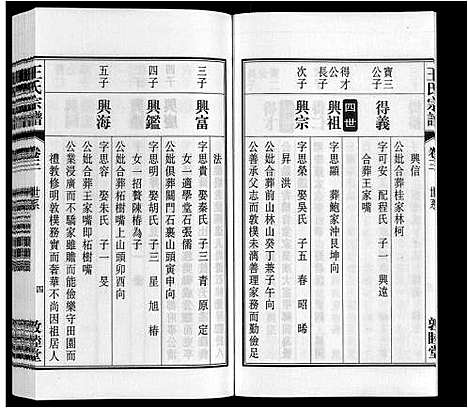 王氏宗譜
卷三 世系
敦睦堂
興信
公妣合葬桂家林柯
寶三公子
得義
字可安 配程氏 子一 興遠
合葬王家嘴
四世
得才公長子
興祖
字思顯 葬鮑家沖艮坤向
昇 洪
次子
興宗
字思榮 娶吳氏 子五 春 昭 晞
公妣合葬前山林山癸丁兼子午向
公善承父志而敦樸未漓善理家務而勤儉足
法
三子
興富
字思貴 娶秦氏 子三 青 原 定
女一 適學堂石張儒
公妣俱葬關門石裏山頭寅申向
四子
興鑑
字思明 娶胡氏 子三 星 旭 椿
女一 招贅陳椿為子
公妣合葬柘樹嘴上山頭卯酉向
五子
興海
字思容 娶朱氏 子一 旻
公妣合葬王家嘴即柘樹嘴
公業浸廣而不驕家雖贍而能儉樂守田園而
禮教修明敦樸務實而奢華不尚因祖居人
王氏宗譜
卷三 世系
四
敦睦堂